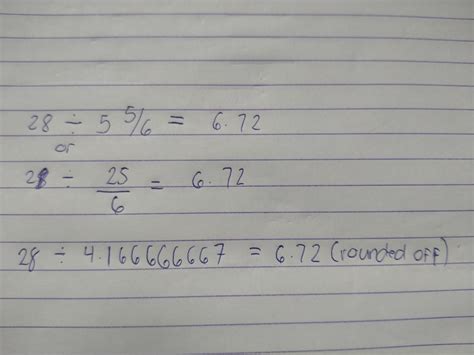 28 ÷ 5 5/6 = 6.72
or
28 ÷ 25/6 = 6.72
28 ÷ 4.166666667 = 6.72 (rounded off)